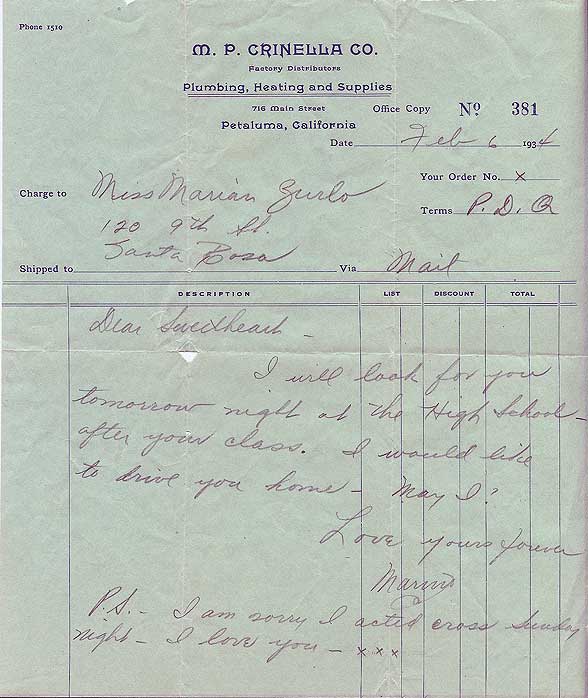 Phone 1510
M. P. CRINELLA CO.
Factory Distributors
Plumbing, Heating and Supplies
716 Main Street
Office Copy No 381
Petaluma, California
Date Feb 6 1934
Your Order No. x
Charge to Miss Marian Zurlo
Terms P. D. Q
120 9th St.
Santa Rosa
Shipped to Via Mail
DESCRIPTION LIST DISCOUNT TOTAL
Dear Sweetheart -
I will look for you
tomorrow night at the High School -
after your class. I would like
to drive you home - May I?
Love yours forever
P.S. - I am sorry I acted cross Sunday
night - I love you - x x x